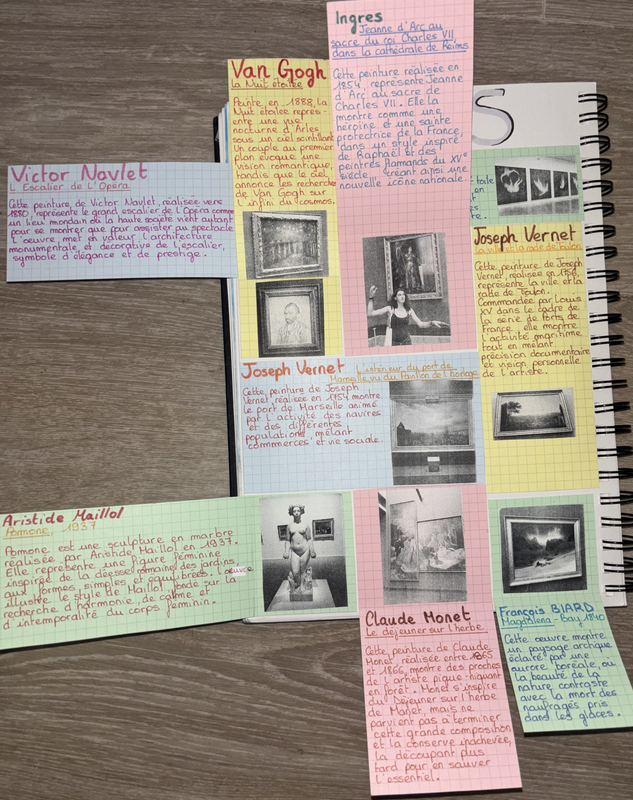 Ingres
Jeanne d'Arc au
sacre du roi Charles VII
dans la cathédrale de Reims
Cette peinture réalisée en
1854, représente Jeanne
d'Arc au sacre de
Charles VII. Elle la
montre comme une
héroïne et une sainte
protectrice de la France,
dans un style inspiré
de Raphaël et des
peintres flamands du XVe
siècle, créant ainsi une
nouvelle icône nationale.
Van Gogh
la Nuit étoilée
Peinte en 1888, la
Nuit étoilée représ-
ente une vue
nocturne d'Arles
sous un ciel scintillant.
Un couple au premier
plan évoque une
vision romantique,
tandis que le ciel
annonce les recherches
de Van Gogh sur
l'infini du cosmos.
S
toile
en
te.
Victor Navlet
L'Escalier de L'Opéra
Cette peinture de Victor Navlet, réalisée vers
1880, représente le grand escalier de l'Opéra comme
un lieu mondain où la haute société vient autant
pour se montrer que pour assister au spectacle
L'œuvre met en valeur l'architecture
monumentale et décorative de l'escalier,
symbole d'élégance et de prestige.
Joseph Vernet
La ville et la rade de Toulon
Cette peinture de Joseph
Vernet, réalisée en
représente la ville et la
rade de Toulon.
Commandée par Louis
XV dans le cadre de
la série de Ports de
France, elle montre
l'activité maritime
tout en mêlant
précision documentaire
et vision personnelle
de l'artiste.
Joseph Vernet
L'intérieur du port de
Marseille vu du Pavillon de l'horloge
Cette peinture de Joseph
Vernet, réalisée en 1754 montre
le port de Marseille animé
par l'activité des navires
et des différentes
populations, mêlant
commerces et vie sociale.
Aristide Maillol
Pomone, 1937
Pomone est une sculpture en marbre
réalisée par Aristide Maillol en 1937.
Elle représente une figure féminine
inspirée de la déesse romaine des jardins,
aux formes simples et équilibrées. L'œuvre
illustre le style de Maillol fondé sur la
recherche d'harmonie, de calme et
d'intemporalité du corps féminin.
Claude Monet
Le déjeuner sur l'herbe
Cette peinture de Claude
Monet, réalisée entre 1865
et 1866, montre des proches
de l'artiste pique-niquant
en forêt. Monet s'inspire
du Déjeuner sur l'herbe
de Manet, mais ne
parvient pas à terminer
cette grande composition
et la conserve inachevée,
la découpant plus
tard pour en sauver
l'essentiel.
François BIARD
Magdalena-Bay, 1840
Cette œuvre montre
un paysage arctique
éclairé par une
aurore boréale, où
la beauté de la
nature contraste
avec la mort des
naufragés pris
dans les glaces.